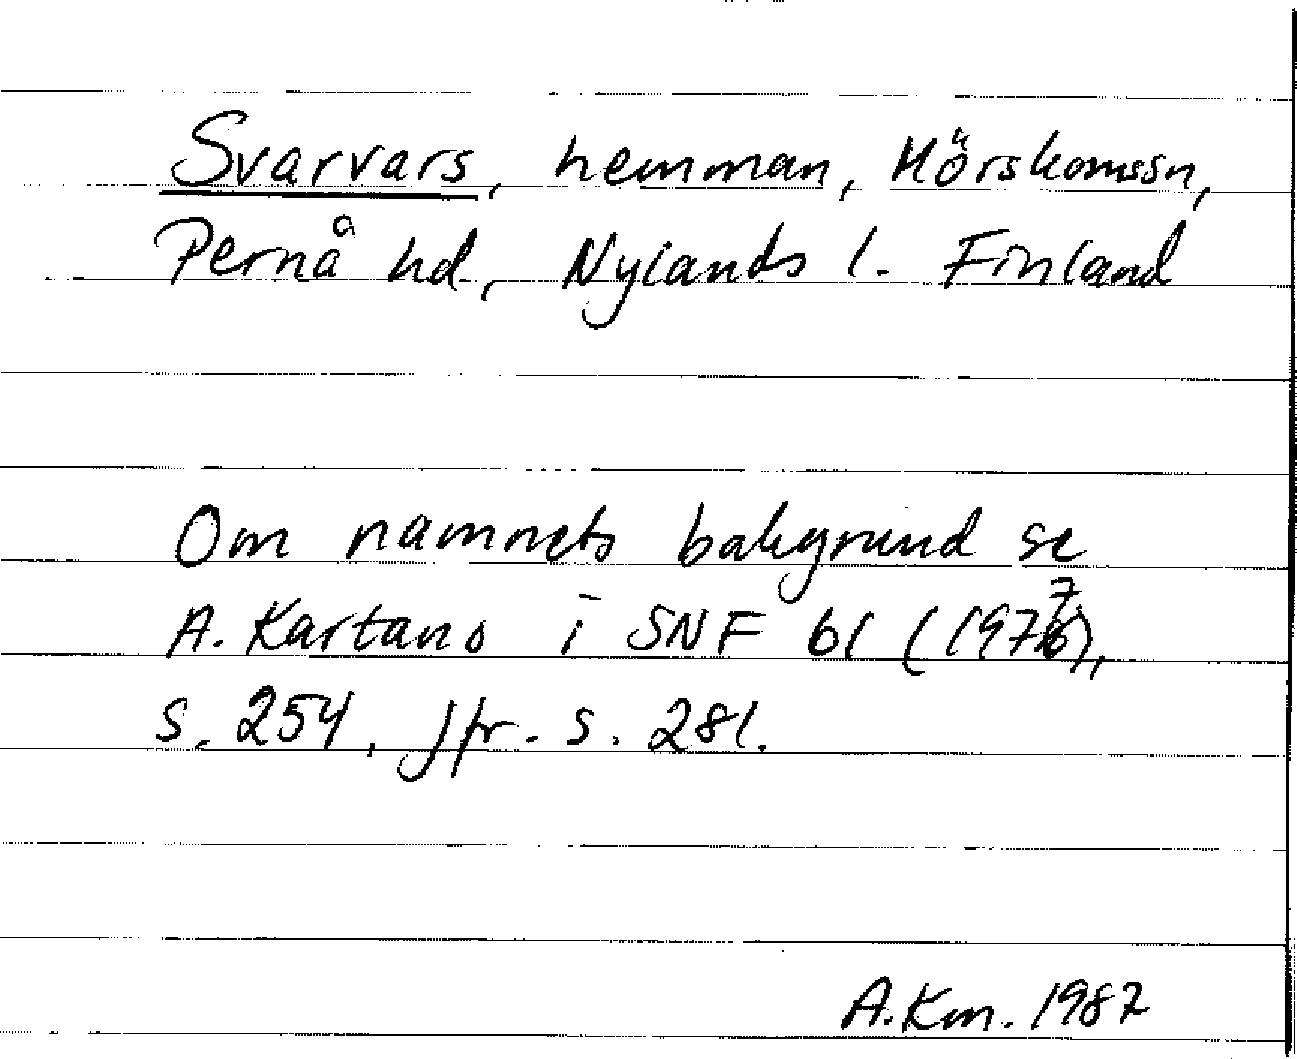 Svarvars, hemman, Mörskomssn,
Pernå hd, Nylands l. Finland
Om namnets bakgrund se
A. Kartano i SNF 61 (1977),
s. 254, jfr. s. 281.
A.Km. 1987